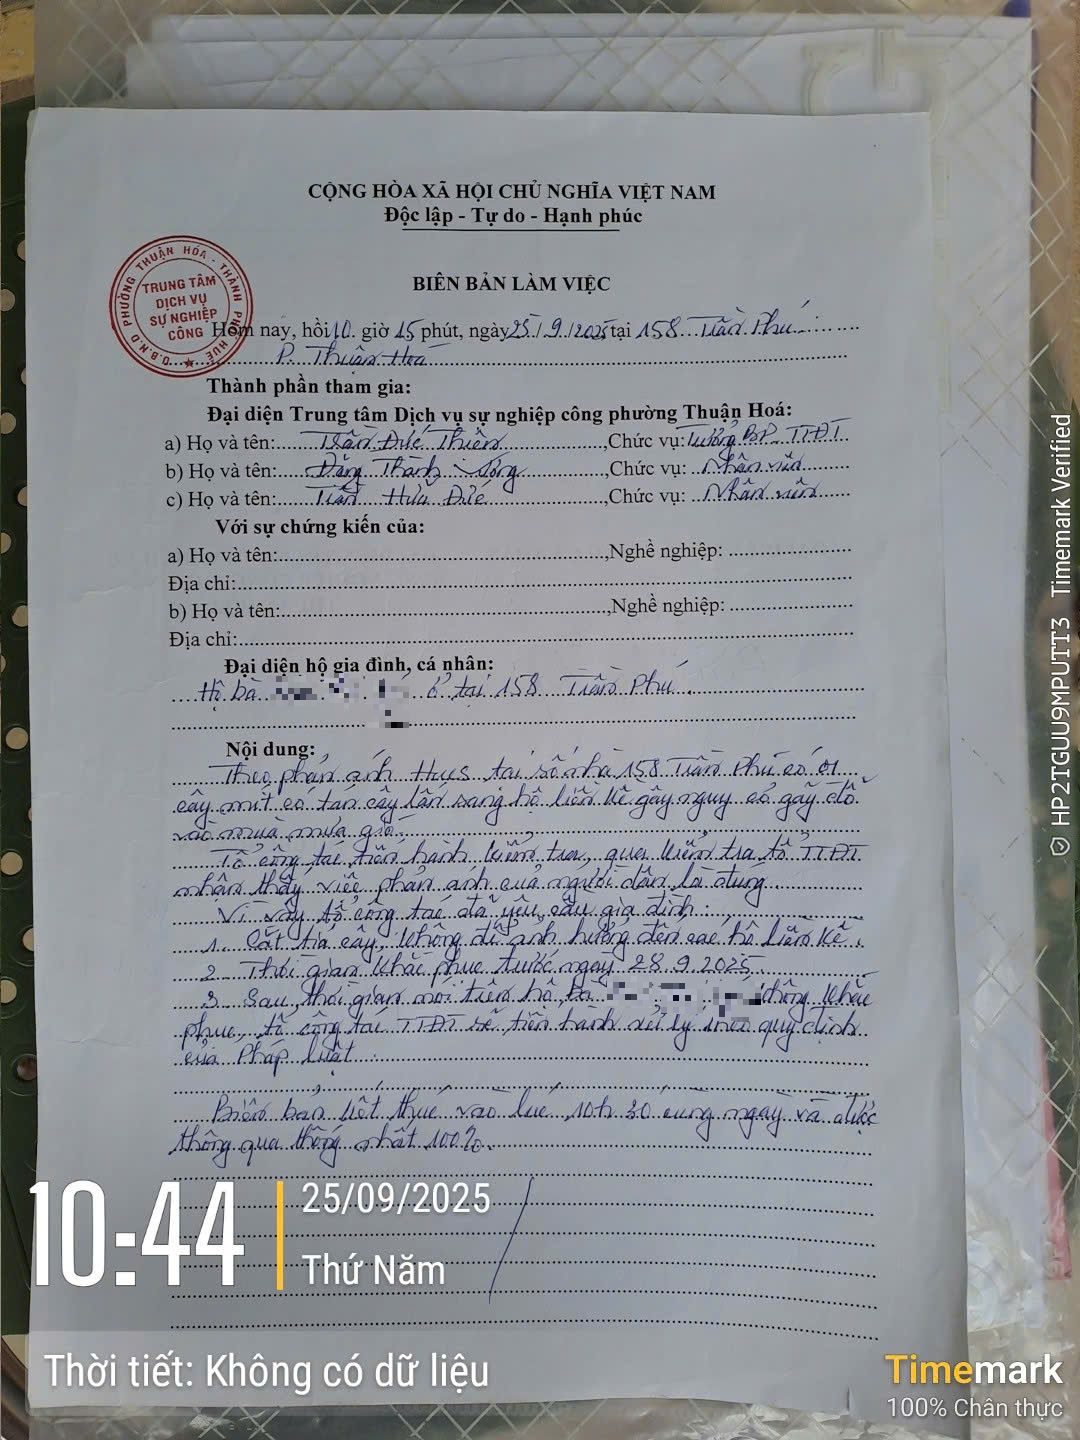 CỘNG HÒA XÃ HỘI CHỦ NGHĨA VIỆT NAM
Độc lập - Tự do - Hạnh phúc
BIÊN BẢN LÀM VIỆC
U.B.N.D PHƯỜNG THUẬN HÓA - THÀNH PHỐ HUẾ
TRUNG TÂM
DỊCH VỤ
SỰ NGHIỆP
CÔNG
Hôm nay, hồi 10 giờ 15 phút, ngày 25/9/2025 tại 158 Trần Phú
P. Thuận Hoá
Thành phần tham gia:
Đại diện Trung tâm Dịch vụ sự nghiệp công phường Thuận Hoá:
a) Họ và tên: Trần Đức Thiện, Chức vụ: Trưởng BP-TTĐT
b) Họ và tên: Đặng Thành, Chức vụ: Nhân viên
c) Họ và tên: Trần Hữu Đức, Chức vụ: Nhân viên
Với sự chứng kiến của:
a) Họ và tên:, Nghề nghiệp:
Địa chỉ:
b) Họ và tên:, Nghề nghiệp:
Địa chỉ:
Đại diện hộ gia đình, cá nhân:
Hộ bà ở tại 158 Trần Phú.
Nội dung:
Theo phản ánh HueS tại số nhà 158 Trần Phú có 01
cây mít có tán cây lấn sang hộ liền kề gây nguy cơ gãy đổ
vào mùa mưa gió.
Tổ công tác tiến hành kiểm tra, qua kiểm tra tổ TTĐT
nhận thấy việc phản ánh của người dân là đúng.
Vì vậy tổ công tác đã yêu cầu gia đình:
1. Cắt tỉa cây, không để ảnh hưởng đến các hộ liền kề.
2 - Thời gian khắc phục trước ngày 28.9.2025.
3 - Sau thời gian nói trên hộ bà không khắc
phục, tổ công tác TTĐT sẽ tiến hành xử lý theo quy định
của Pháp luật.
Biên bản kết thúc vào lúc 10h30 cùng ngày và được
thông qua thống nhất 100%.
10:44
25/09/2025
Thứ Năm
Thời tiết: Không có dữ liệu
Timemark
100% Chân thực
HP2TGUU9MPUTI3 Timemark Verified